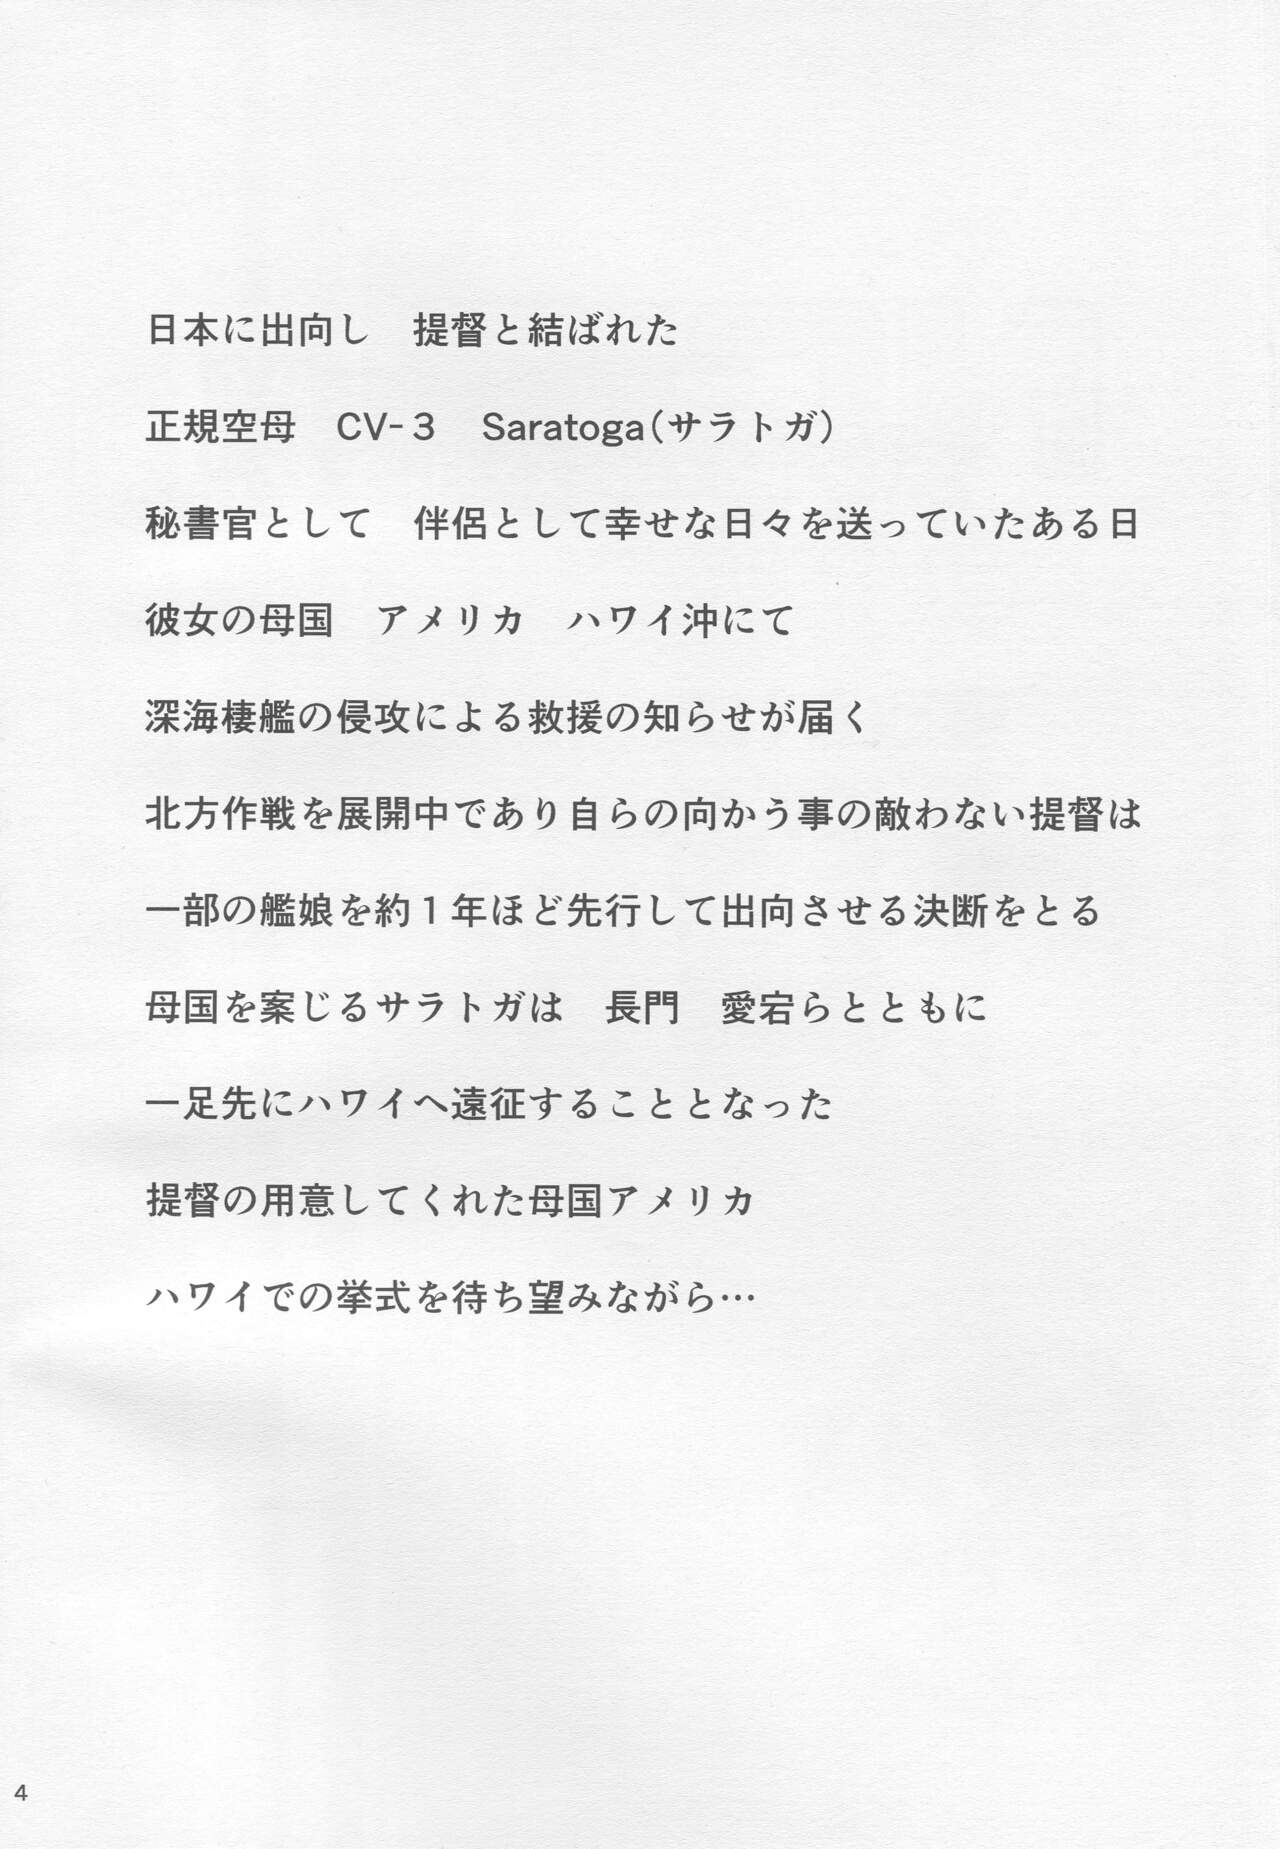 日本に出向し　提督と結ばれた
正規空母　CV-３　Saratoga（サラトガ）
秘書官として　伴侶として幸せな日々を送っていたある日
彼女の母国　アメリカ　ハワイ沖にて
深海棲艦の侵攻による救援の知らせが届く
北方作戦を展開中であり自らの向かう事の敵わない提督は
一部の艦娘を約１年ほど先行して出向させる決断をとる
母国を案じるサラトガは　長門　愛宕らとともに
一足先にハワイへ遠征することとなった
提督の用意してくれた母国アメリカ
ハワイでの挙式を待ち望みながら…
4